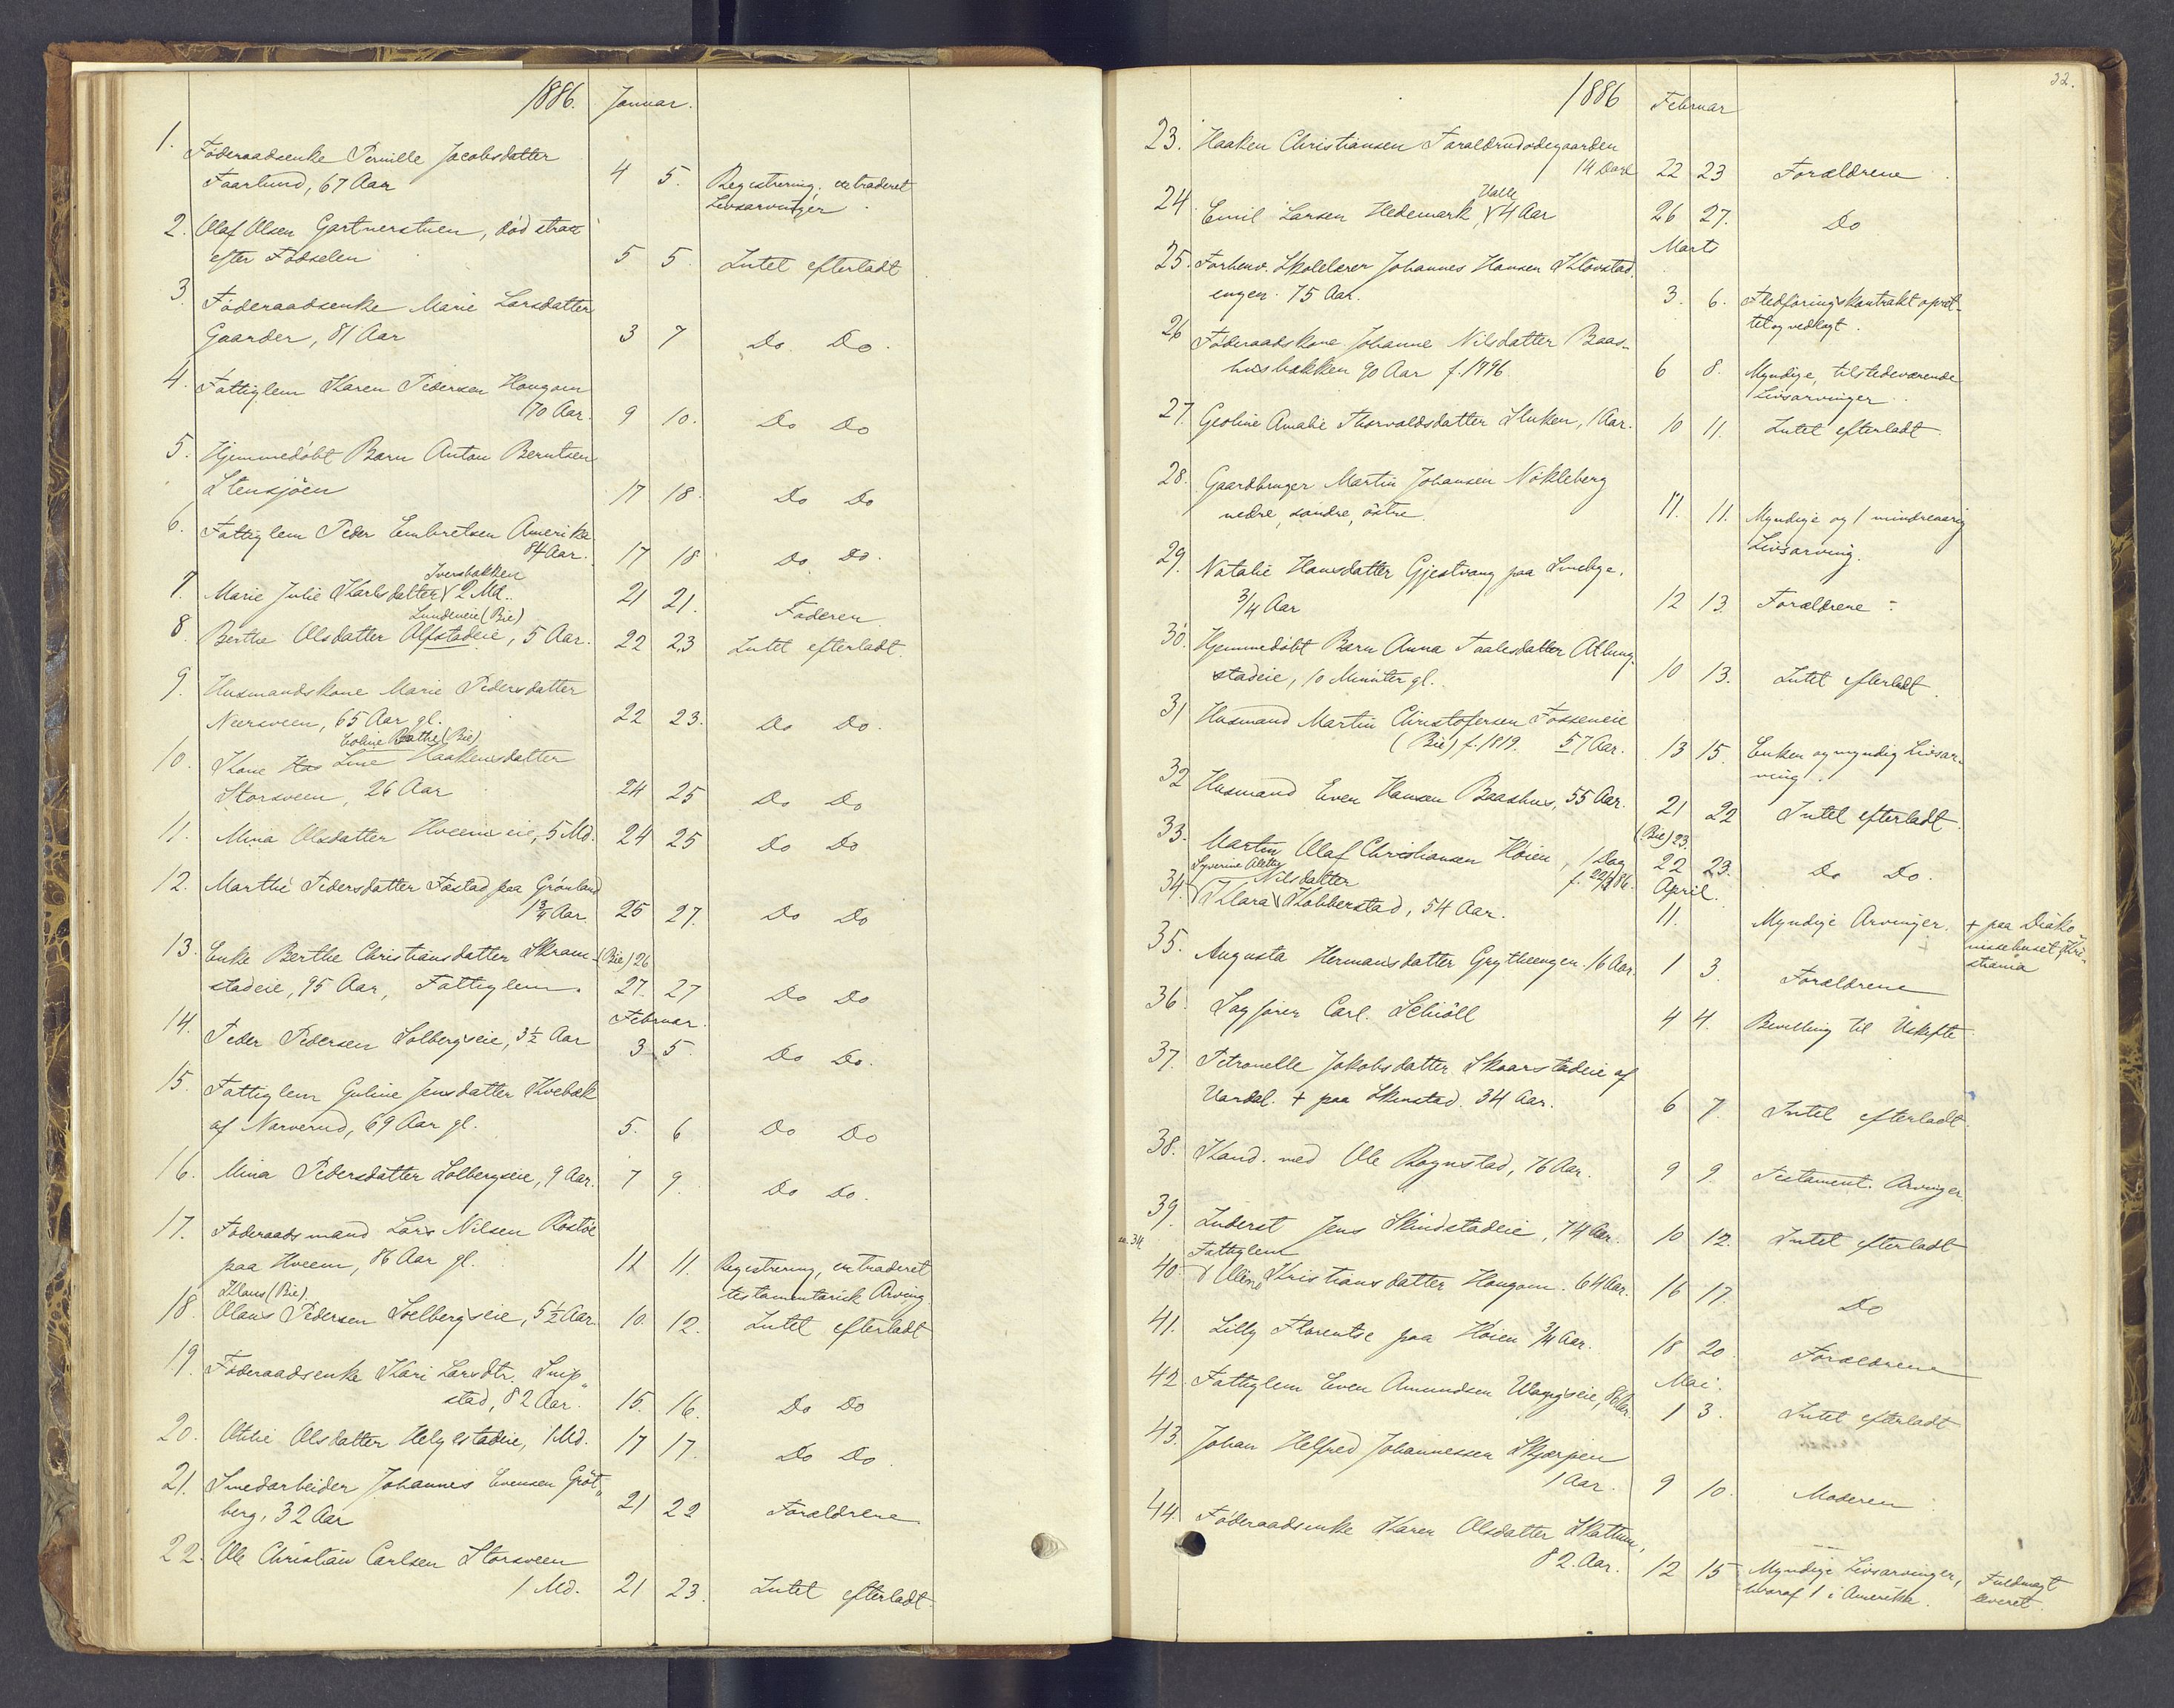 1886. Januar.
1. Föderaadsenke Pernille Jacobsdatter
Faarlund, 67 Aar 4 5. Registrering, extraderet
Livsarvinger.
2. Olaf Olsen Gartnerstuen, död strax
efter Födselen 5 5. Intet efterladt
3. Föderaadsenke Marie Larsdatter
Gaarder, 81 Aar 3 7 Do Do.
4. Fattiglem Karen Pedersen Hougom
70 Aar. 9 10. Do Do
5. Hjemmedöbt Barn Anton Berntsen
Stensjöen 17 18. Do Do
6. Fattiglem Peder Embretsen Amerika
84 Aar. 17 18 Do Do.
Iversbakken
7. Marie Julie Karlsdatter 2 Md. 21 21. Faderen
Lundeneie (Bie)
8. Berthe Olsdatter Alfstadeie, 5 Aar. 22 23 Intet efterladt.
9. Husmandskone Marie Pedersdatter
Neersveen, 65 Aar gl. 22 23. Do Do.
Eoline Bathe (Bie)
10. Kone Has Line Haakensdatter
Storsveen, 26 Aar 24 25 Do Do
11. Mina Olsdatter Hveemseie, 5 Md. 24 25 Do Do
12. Marthe Pedersdatter Fastad paa Grönland
1 3/4 Aar. 25 27. Do Do
13. Enke Berthe Christiansdatter Skram- (Bie) 26
stadeie, 95 Aar, Fattiglem. 27. 27 Do Do
Februar.
14. Peder Pedersen Solbergseie, 3½ Aar 3 5. Do Do.
15. Fattiglem Guline Jensdatter Kvebæk
af Narverud, 69 Aar gl. 5. 6 Do Do
16. Mina Pedersdatter Solbergseie, 9 Aar. 7 9. Do Do.
17. Föderaadsmand Lars Nilsen Rostöe
paa Hveem, 86 Aar gl. 11 11. Registrering, extraderet
testamentarisk Arving.
Klaus (Bie).
18. Olaus Pedersen Soelbergseie, 5½ Aar. 10. 12. Intet efterladt
19. Föderaadsenke Kari Larsdtr. Snip„
stad, 82 Aar. 15. 16. Do Do
20. Othie Olsdatter Helgestadeie, 1 Md. 17 17. Do Do.
21. Smedarbeider Johannes Evensen Gröt„
berg, 32 Aar 21 22 Forældrene
22. Ole Christian Carlsen Storsveen
1 Md. 21 23. Intet efterladt.
32.
1886 Februar
23. Haaken Christiansen Faraldrudodegaarden
14 Dage 22 23 Forældrene.
Halle
24. Emil Larsen Hedemark, 4 Aar 26 27. Do
Marts
25. Forhenv. Skolelærer Johannes Hansen Klövstad-
engen. 75 Aar. 3. 6. Fledföringskontrakt opret-
tet og vedlagt.
26 Föderaadskone Johanne Nilsdatter Baas-
husbakken 90 Aar f. 1796. 6 8. Myndige, tilstedeværende
Livsarvinger.
27. Geoline Amalie Thorvaldsdatter Stuken, 1 Aar. 10 11. Intet efterladt.
28. Gaardbruger Martin Johansen Nökleberg
nedre, söndre, östre. 11. 11. Myndige og 1 mindreaarig
Livsarving.
29. Natalie Hansdatter Gjestvang paa Smebye.
3/4 Aar 12 13. Forældrene
30. Hjemmedöbt Barn Anna Paalesdatter Atlung-
stadeie, 10 Minuter gl. 10 13. Intet efterladt.
31 Husmand Martin Christofersen Fosseneie
(Bie) f. 1819. 57 Aar. 13 15. Enken og myndig Livsar-
ving.
32 Husmand Even Hansen Baashus, 55 Aar. 21 22 Intet efterladt.
(Bie) 23.
33. Martin Olaf Christiansen Höien, 1 Dag 22 23. Do Do.
f. 22/3 86. April.
Syverine Alette
Nilsdatter
34. Klara Kobberstad, 54 Aar. 11. Myndige Arvinger. + paa Diako-
nissehuset Kri-
stiania
35. Augusta Hermansdatter Grytheengen. 16 Aar. 1 3. Forældrene
36. Sagförer Carl. Schiöll 4 4. Bevilling til Uskifte
37. Petronelle Jakobsdatter Skaarstadeie af
Vardal. + paa Skinstad. 34 Aar. 6 7. Intet efterladt.
38. Kand. med Ole Rognstad, 76 Aar. 9 9. Testament. Arvinger.
39. Inderst Jens Skindstadeie, 74 Aar. 10 12. Intet efterladt
Fattiglem
40. Oline Kristiansdatter Hougom. 64 Aar. 16 17. Do
41. Lilly Florentse paa Höien 3/4 Aar. 18 20. Forældrene
Mai.
42. Fattiglem Even Amundsen Wangseie, 86 Aar. 1 3. Intet efterladt
43. Johan Helfred Johannessen Skjerpen
1 Aar. 9 10. Moderen
44. Föderaadsenke Karen Olsdatter Skattum,
82. Aar. 12 15 Myndige Livsarvinger, Fuldmagt
hvoraf 1 i Amerika. leveret.